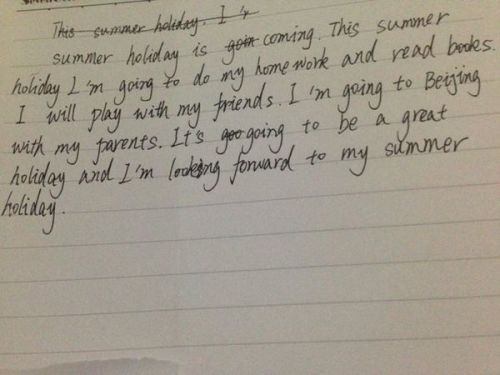 This summer holiday. I'
summer holiday is goin coming. This summer
holiday I'm going to do my homework and read books.
I will play with my friends. I'm going to Beijing
with my parents. It's goo going to be a great
holiday and I'm looking forward to my summer
holiday.